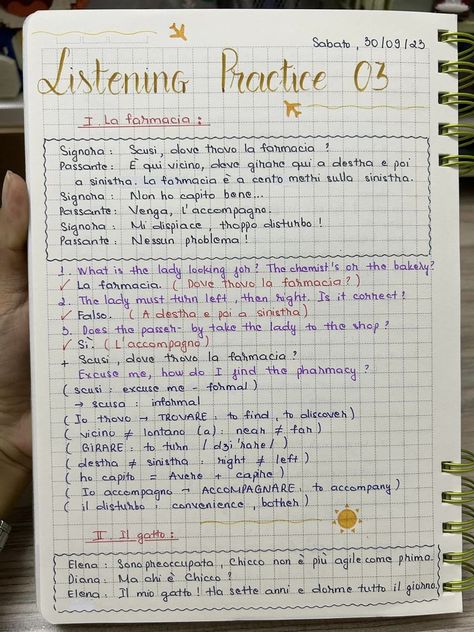 Sabato, 30/09/23
Listening Practice 03
I. La farmacia:
Signora: Scusi, dove trovo la farmacia?
Passante: È qui vicino, deve girare qui a destra e poi
a sinistra. La farmacia è a cento metri sulla sinistra.
Signora: Non ho capito bene...
Passante: Venga, l'accompagno.
Signora: Mi dispiace, troppo disturbo!
Passante: Nessun problema!
1. What is the lady looking for? The chemist's or the bakery?
✓ La farmacia. (Dove trovo la farmacia?)
2. The lady must turn left, then right. Is it correct?
✓ Falso. (A destra e poi a sinistra)
3. Does the passer-by take the lady to the shop?
✓ Sì. (L'accompagno)
+ Scusi, dove trovo la farmacia?
Excuse me, how do I find the pharmacy?
(scusi: excuse me - formal)
→ scusa: informal
(Io trovo → TROVARE: to find, to discover)
(vicino ≠ lontano (a): near ≠ far)
(GIRARE: to turn /dʒi'rare/)
(destra ≠ sinistra: right ≠ left)
(ho capito = Avere + capire)
(Io accompagno → ACCOMPAGNARE: to accompany)
(il disturbo: convenience, bother)
II. Il gatto:
Elena: Sono preoccupata, Chicco non è più agile come prima.
Diana: Ma chi è Chicco?
Elena: Il mio gatto! Ha sette anni e dorme tutto il giorno.